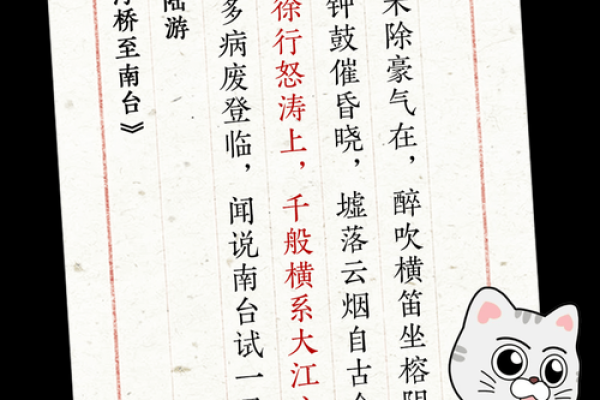 桥至南台》
陆游
多病废登临，闻说南台试一
徐行怒涛上，千般横系大江
钟鼓催昏晓，墟落云烟自古
未除豪气在，醉吹横笛坐榕阴